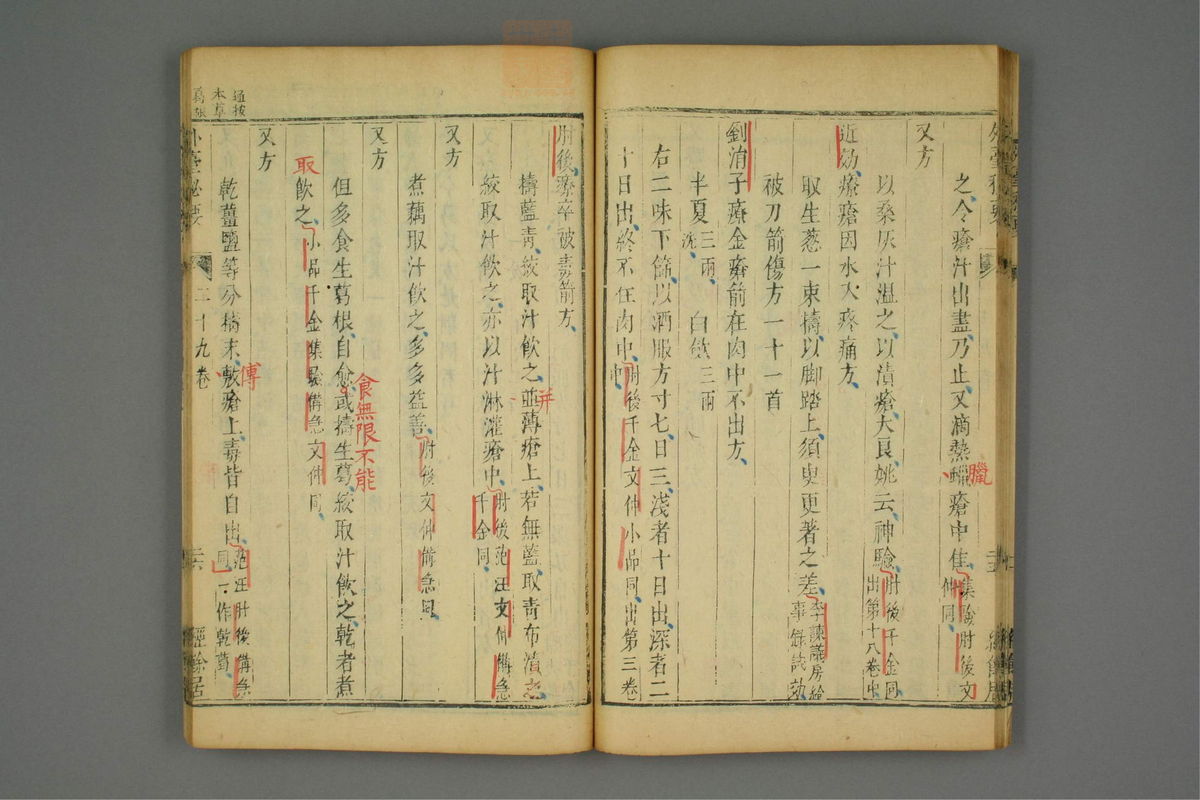 之、令瘡汁出盡、乃止、又滴熱蠟瘡中佳、集驗肘後文仲同、
臘
又方
以桑灰汁温之、以漬瘡、大良、姚云、神驗、肘後千金同、出第十八卷中
近効、療瘡因水入疼痛方、
取生葱一束、擣、以脚踏上、須臾更著之差、李諫議房給事録試効、
被刀箭傷方一十一首
劉涓子療金瘡箭在肉中不出方、
半夏三兩洗、 白斂三兩
右二味下篩、以酒服方寸匕、日三、淺者十日出、深者二
十日出、終不在肉中、肘後千金文仲小品同、出第三卷中
肘後、療卒被毒箭方、
擣藍青、絞取汁飲之、並薄瘡上、若無藍、取青布漬之、
并
絞取汁飲之、亦以汁淋灌瘡中、肘後范汪文仲備急千金同、
又方
煮藕取汁飲之、多多益善、肘後文仲備急同、
又方
但多食生葛根、自愈、或擣生葛、絞取汁飲之、乾者煮
食無限不能
取飲之、小品千金集驗備急文仲同、
取
又方
乾薑鹽等分擣末、敷瘡上、毒皆自出、范汪肘後備急同、一作乾葛、
傅
外臺秘要 二十九卷 二六 經餘居
通按
本草